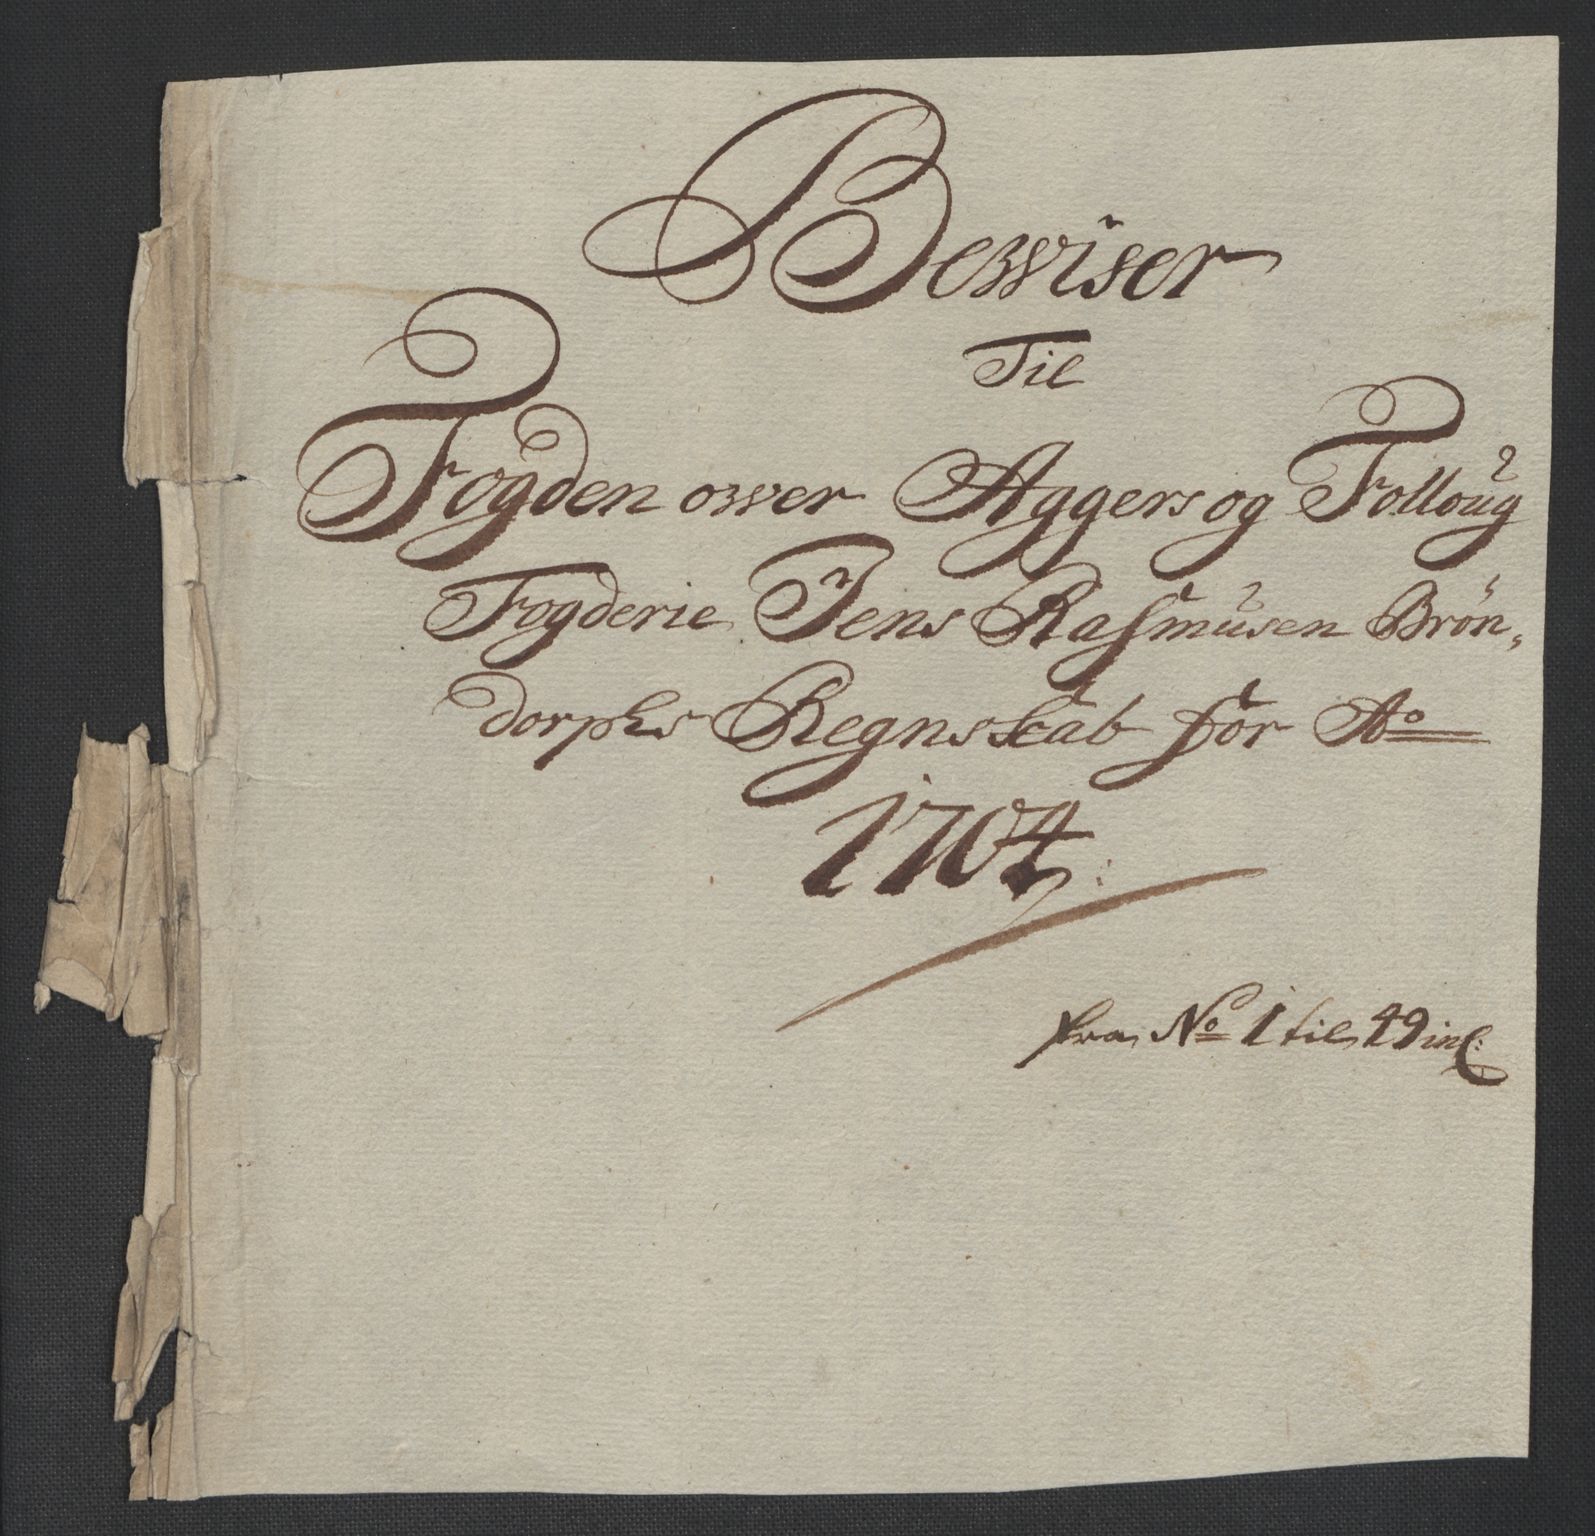 Bewiser
Til
Fogden ower Aggers og Folloug
Fogderie Jens Rasmusen Brøn-
dorphs Regnskab for Ao
1704
fra No 1 til 49 incl: